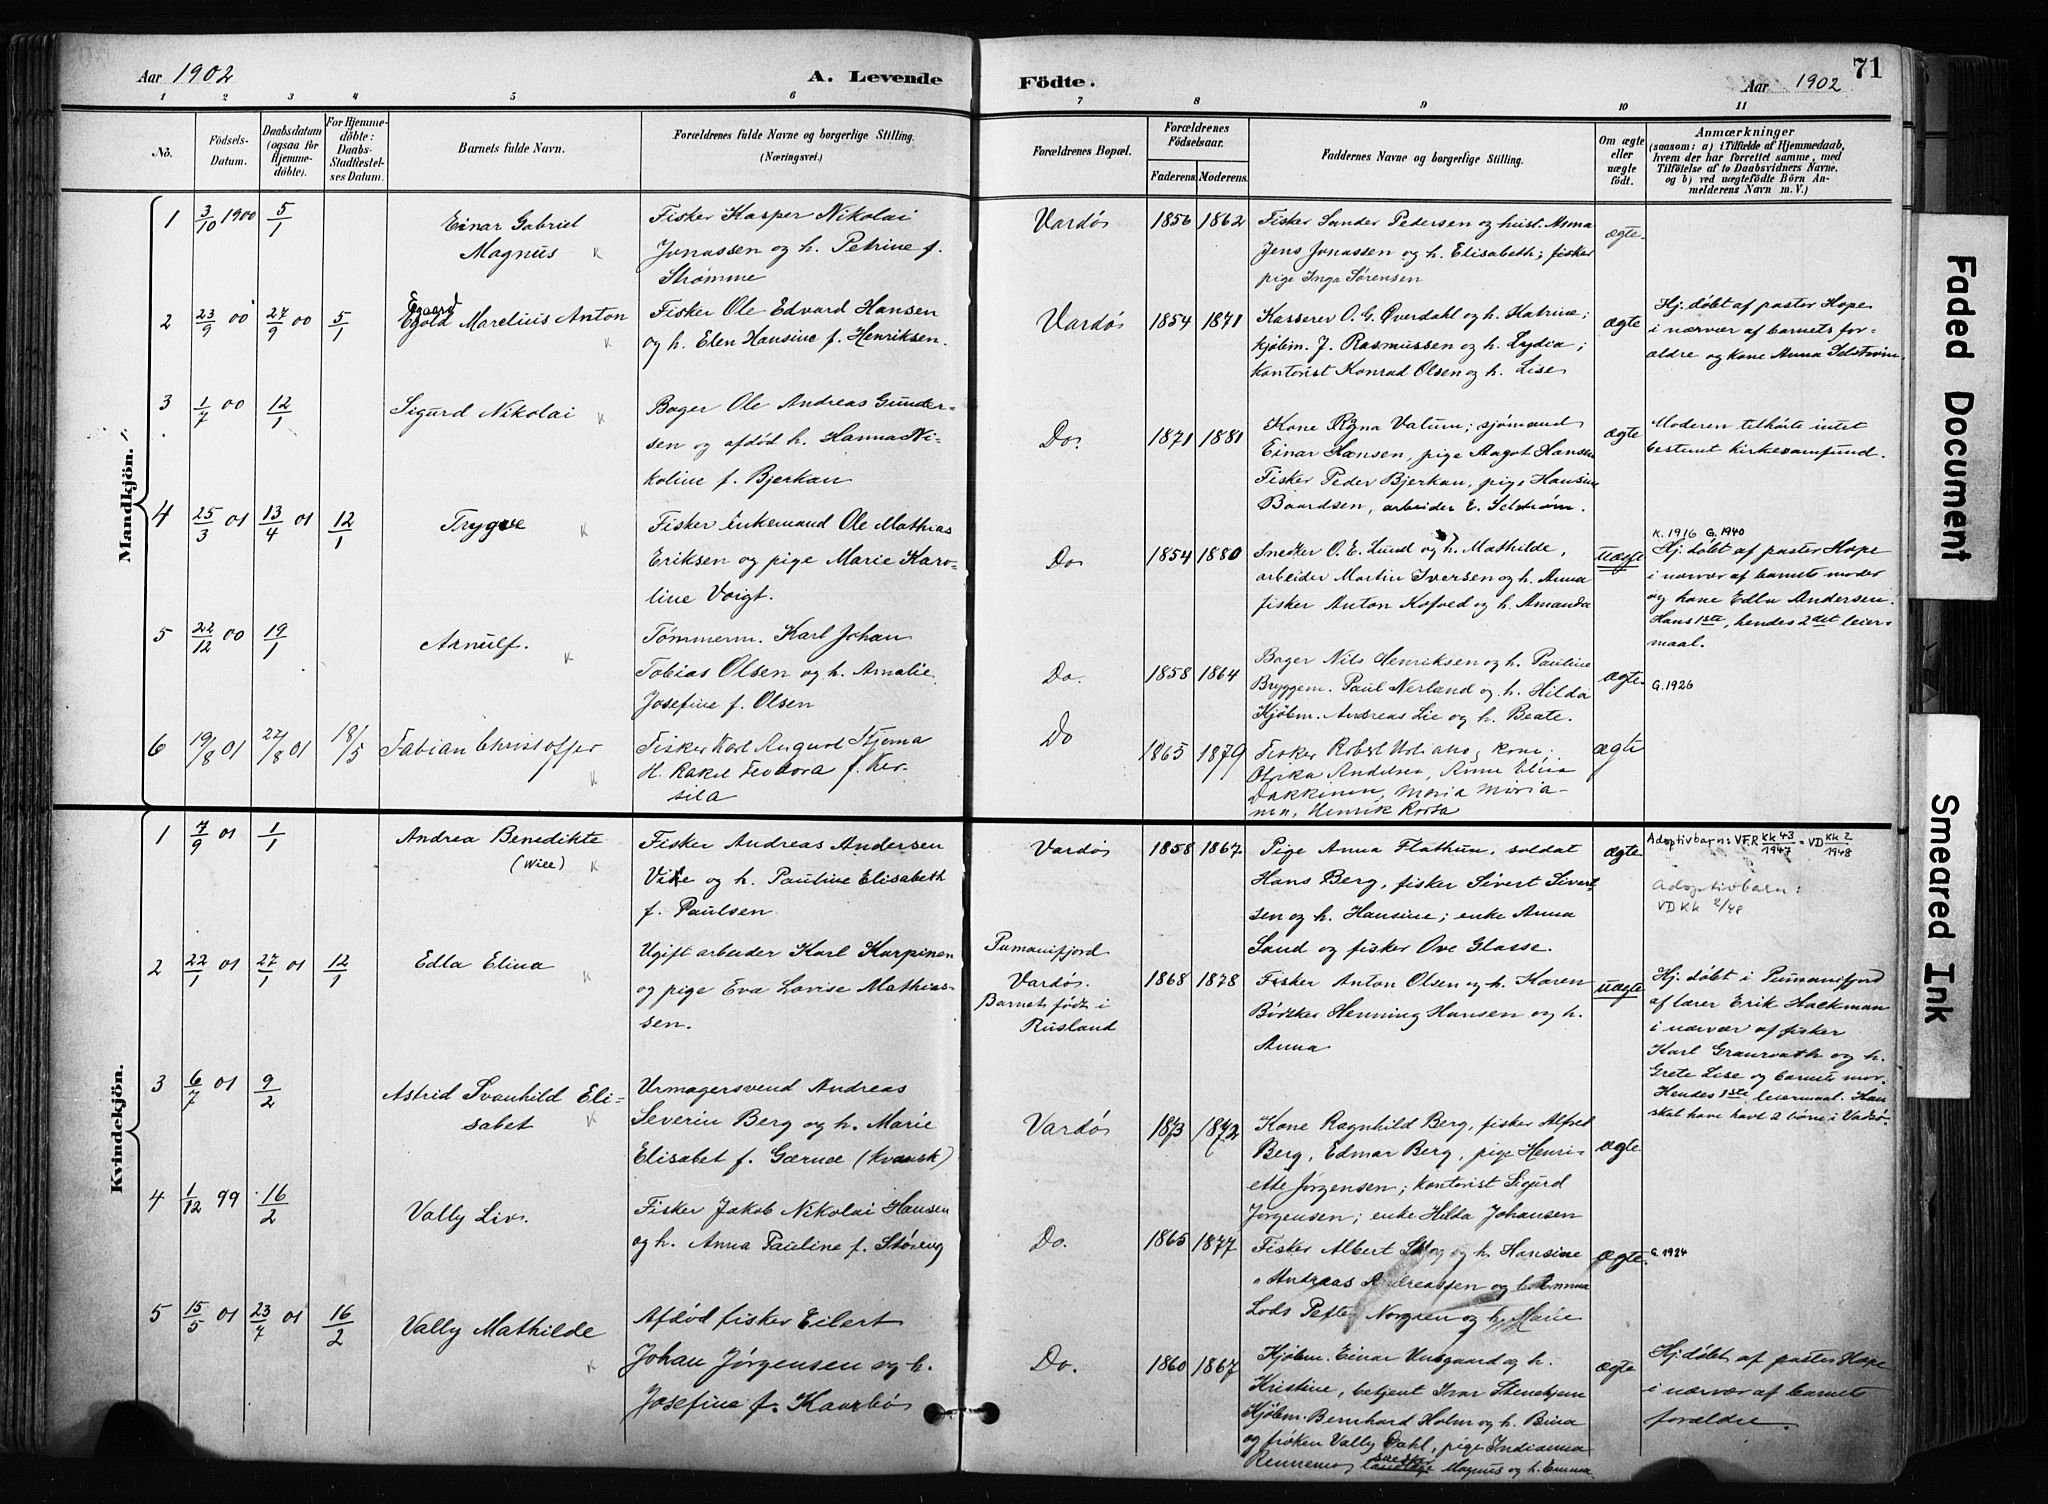 Aar 1902
A. Levende
Födte.
Aar 1902
71
1 2 3 4 5 6 7 8 9 10 11
No.
Födsels-Datum.
Daabsdatum (ogsaa for Hjemme-döbte).
For Hjemme-döbte: Daabs-Stadfæstel-ses Datum.
Barnets fulde Navn.
Forældrenes fulde Navne og borgerlige Stilling.
(Næringsvei.)
Forældrenes Bopæl.
Forældrenes Födselsaar.
Faderens. Moderens.
Faddernes Navne og borgerlige Stilling.
Om ægte eller uægte födt.
Anmærkninger
(saasom: a) i Tilfælde af Hjemmedaab, hvem der har forrettet samme, med Tilföielse af to Daabsvidners Navne, og b) ved uægtefödte Börn An-melderens Navn m. V.)
Mandkjön.
1 3/10 1900 5/1
Einar Gabriel
Magnus K
Fisker Kasper Nikolai
Jonassen og h. Petrine f.
Strømme
Vardø 1856 1862
Fisker Sander Pedersen og hust. Anna
Jens Jonassen og h. Elisabeth; fisker
pige Inga Sørensen
ægte
2 23/9 00 27/9 00 5/1
Egaard
Egold Marelius Anton K
Fisker Ole Edvard Hansen
og h. Elen Hansine f. Henriksen.
Vardø 1854 1871
Kasserer O. G. Øverdahl og h. Katrine;
kjøbm. J. Rasmussen og h. Lydia;
kontorist Konrad Olsen og h. Lise
ægte
Hj. døbt af pastor Hope
i nærvær af barnets for-
ældre og kone Anna Selstrøm.
3 1/7 00 12/1
Sigurd Nikolai K
Bager Ole Andreas Gunder-
sen og afdød h. Hanna Ni-
koline f. Bjerkan
Do. 1871 1881
Kone Ragna Valum; sjømand
Einar Hansen, pige Aagot Hansen
Fisker Peder Bjerkan, pige Hansine
Baardsen, arbeider E. Selstrøm.
ægte
Moderen tilhørte intet
bestemt kirkesamfund.
4 25/3 01 13/4 01 12/1
Trygve K
Fisker enkemand Ole Mathias
Eriksen og pige Marie Karo-
line Voigt.
Do 1854 1880
Snedker O. E. Lund og h. Mathilde,
arbeider Martin Iversen og h. Anna
fisker Anton Kofoed og h. Amanda
uægte
K. 1916 G. 1940
Hj. døbt af pastor Hope
i nærvær af barnets moder
og kone Edla Andersen.
Hans 1ste, hendes 2det leier-
maal.
5 22/12 00 19/1
Arnulf. K
Tømmerm. Karl Johan
Tobias Olsen og h. Amalie
Josefine f. Olsen
Do. 1858 1864
Bager Nils Henriksen og h. Pauline
Bryggem. Paul Nerland og h. Hilda
Kjøbm. Andreas Lie og h. Beate.
ægte
G. 1926
6 19/8 01 22/8 01 18/5
Fabian Christoffer K
Fisker Karl August Stjerna
H. Rakel Teodora f. Ker-
sila
Do 1865 1879
Fisker Robert
Andersen, Anne
Maria Moria-
nen, Henrik
ægte
Kvindekjön.
1 7/9 01 1/1
Andrea Benedikte
(Wiee) K
Fisker Andreas Andersen
Vike og h. Pauline Elisabeth
f. Paulsen
Vardø 1858 1867
Pige Anna Flathun, soldat
Hans Berg, fisker Sivert Sivert-
sen og h. Hansine; enke Anna
Sand og fisker Ove Glasse.
ægte
Adoptivbarn: VFR Kk 43/1947 = VD Kk 2/1948
Adoptivbarn:
VD Kk 2/48
2 22/1 01 27/1 01 12/1
Edla Elina K
Ugift arbeider Karl Karpinen
og pige Eva Lovise Mathias-
sen.
Pumanifjord
Vardø.
Barnet født i
Rusland
1868 1878
Fisker Anton Olsen og h. Karen
Bødker Henning Hansen og h.
Anna
uægte
Hj. døbt i Pumanifjord
af lærer Erik Hackman
i nærvær af fisker
Karl Granroath og h.
Grete Lise og barnets mor.
Hendes 1ste leiermaal. Han
skal have havt 2 børn i Vadsø.
3 6/7 01 9/2
Astrid Svanhild Eli-
sabet K
Urmagersvend Andreas
Severin Berg og h. Marie
Elisabet f. Gærnæ (Kvænsk)
Vardø 1873 1872
Kone Ragnhild Berg, fisker Alfred
Berg, Edmar Berg, pige Henri-
ette Jørgensen; kontorist Sigurd
Jørgensen; enke Hilda Johansen
ægte
4 1/12 99 16/2
Vally Liv.
Fisker Jakob Nikolai Hansen
og h. Anna Pauline f. Støreng
Do. 1865 1877
Fisker Albert og h. Hansine
" Andreas Andreassen og h. Emma
Lods Petter Norgren og h. Marie
ægte.
G. 1924
5 15/5 01 23/7 01 16/2
Vally Mathilde K
Afdød fisker Eilert
Johan Jørgensen og h.
Josefine f. Kaarbø
Do. 1860 1867
Kjøbm. Einar og h.
Kristine, betjent Ivar Stenehjem
Kjøbm. Bernhard Holm og h. Bina
og frøken Vally Dahl, pige Indianna
Rennemo, Magnus og h. Emma
ægte
Hj. døbt af pastor Hope
i nærvær af barnets
forældre.
Faded Document
Smeared Ink